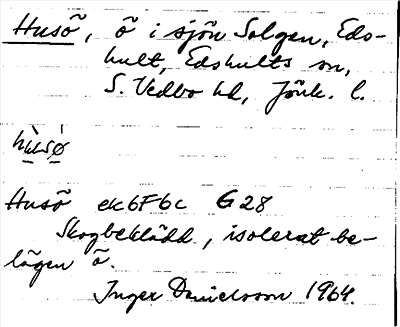 Husö, ö i sjön Solgen, Eds-
hult, Edshults sn,
S. Vedbo hd, Jönk. l.
hùsø̀
Husö ek6F6c G28
Skogbeklädd, isolerat be-
lägen ö.
Inger Danielsson 1964.